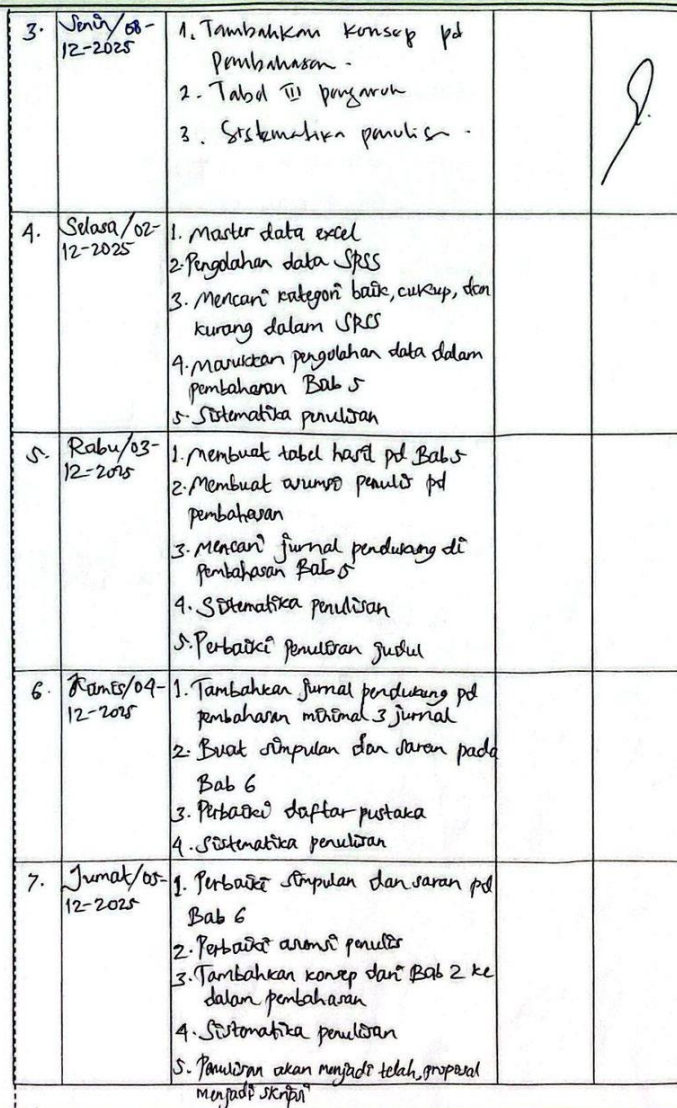 3. Senin/08-
12-2025
1. Tambahkan Konsep pd
Pembahasan.
2. Tabel III pengaruh
3. Sistematika penulisan.
4. Selasa/02-
12-2025
1. Master data excel
2. Pengolahan data SPSS
3. Mencari kategori baik, cukup, dan
kurang dalam SPSS
4. Masukkan pengolahan data dalam
pembahasan Bab 5
5. Sistematika penulisan
5. Rabu/03-
12-2025
1. Membuat tabel hasil pd Bab 5
2. Membuat asumsi penulis pd
pembahasan
3. Mencari jurnal pendukung di
pembahasan Bab 5
4. Sistematika penulisan
5. Perbaiki penulisan judul
6. Kamis/04-
12-2025
1. Tambahkan jurnal pendukung pd
pembahasan minimal 3 jurnal
2. Buat simpulan dan saran pada
Bab 6
3. Perbaiki daftar pustaka
4. Sistematika penulisan
7. Jumat/05-
12-2025
1. Perbaiki simpulan dan saran pd
Bab 6
2. Perbaiki asumsi penulis
3. Tambahkan konsep dari Bab 2 ke
dalam pembahasan
4. Sistematika penulisan
5. Penulisan akan menjadi telah, proposal
menjadi skripsi